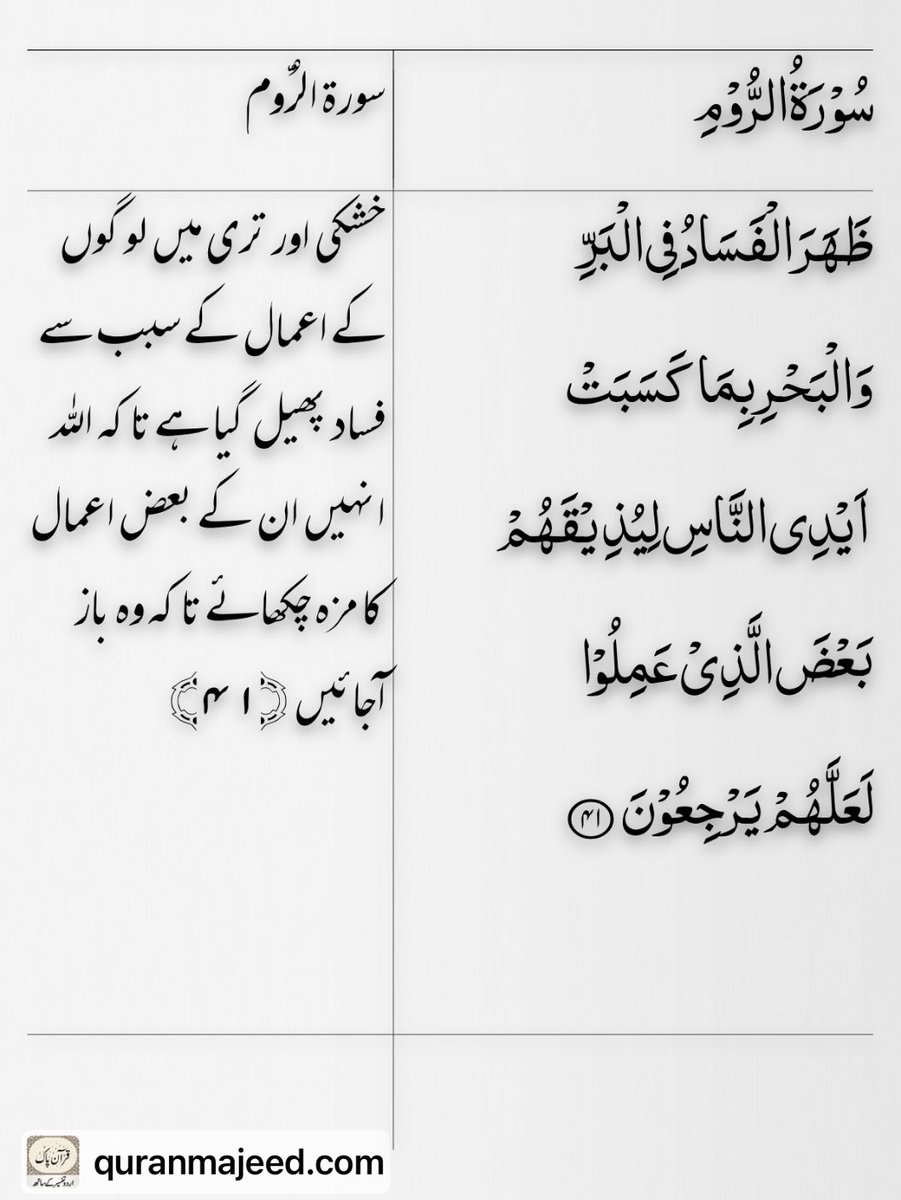 سُوْرَةُ الرُّوْمِ
ظَهَرَ الْفَسَادُ فِی الْبَرِّ
وَالْبَحْرِ بِمَا كَسَبَتْ
اَیْدِی النَّاسِ لِیُذِیْقَهُمْ
بَعْضَ الَّذِیْ عَمِلُوْا
لَعَلَّهُمْ یَرْجِعُوْنَ ۴۱
سورة الرُّوم
خشکی اور تری میں لوگوں
کے اعمال کے سبب سے
فساد پھیل گیا ہے تاکہ الله
انہیں ان کے بعض اعمال
کا مزہ چکھائے تاکہ وہ باز
آجائیں ﴿۴۱﴾
قرآن پاک
اردو تفسیر کے ساتھ
quranmajeed.com